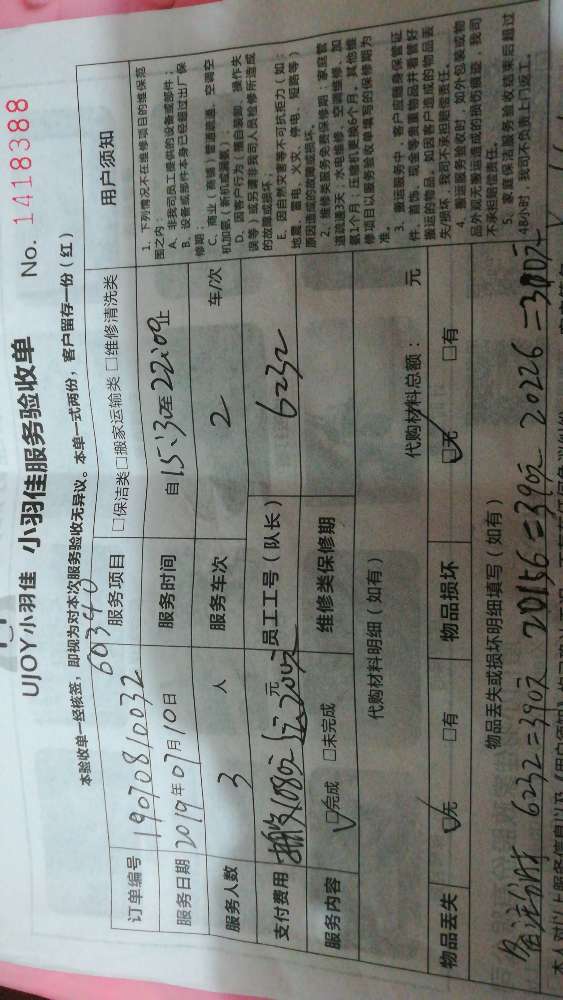 UJOY小羽佳 小羽佳服务验收单 No. 1418388
本验收单一经核签，即视为对本次服务验收无异议。本单一式两份，客户留存一份（红）
60340
订单编号 19070810032 服务项目 □保洁类□搬家运输类□维修清洗类
服务日期 2019年07月10日 服务时间 自15:30至22:09止
服务人数 3 人 服务车次 2 车/次
支付费用 1080元 元 员工工号（队长） 6232
服务内容 ☑完成 □未完成 维修类保修期
代购材料明细（如有） 代购材料总额： 元
物品丢失 ☑无 □有 物品损坏 ☑无 □有
物品丢失或损坏明细填写（如有）
备注分成 6232=390元 20156=390元 20226=300元
用户须知
1、下列情况不在维修项目的维保范
围之内：
A、非我司员工提供的设备或部件；
B、设备或部件本身已经超过出厂保
修期；
C、商业（商铺）管道疏通、空调空
机加氨（新机或漏氨）；
D、因客户行为（擅自装卸、操作失
误等）或另请非我司人员检修所造成
的故障或损坏；
E、因自然灾害等不可抗拒力（如：
地震、雷电、火灾、停电、短路等）
原因造成的故障或损坏。
2、维修类服务免费保修期：家庭管
道疏通3天；水电维修、空调维修、加
氨1个月；压缩机更换6个月。其他维
修项目以服务验收单填写的保修期为
准。
3、搬运服务中，客户应随身保管证
件、首饰、现金等贵重物品并看管好
搬运的物品。如因客户造成的物品丢
失/损坏，我司不承担赔偿责任。
4、搬运服务验收时，如外包装或物
品外观无搬运造成的损伤痕迹，我司
不承担赔偿责任。
5、家庭保洁服务验收结束后超过
48小时，我司不负责上门返工。